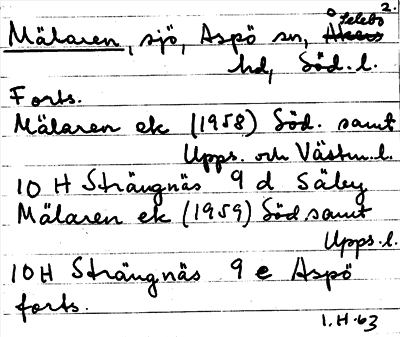 2.
Mälaren, sjö, Aspö sn, Åkers Selebo
hd, Söd. l.
Forts.
Mälaren ek (1958) Söd. samt
Upps. och Västm. l.
10 H Strängnäs 9 d Säby
Mälaren ek (1959) Söd samt
Upps. l.
10H Strängnäs 9 e Aspö
forts.
1.H.63